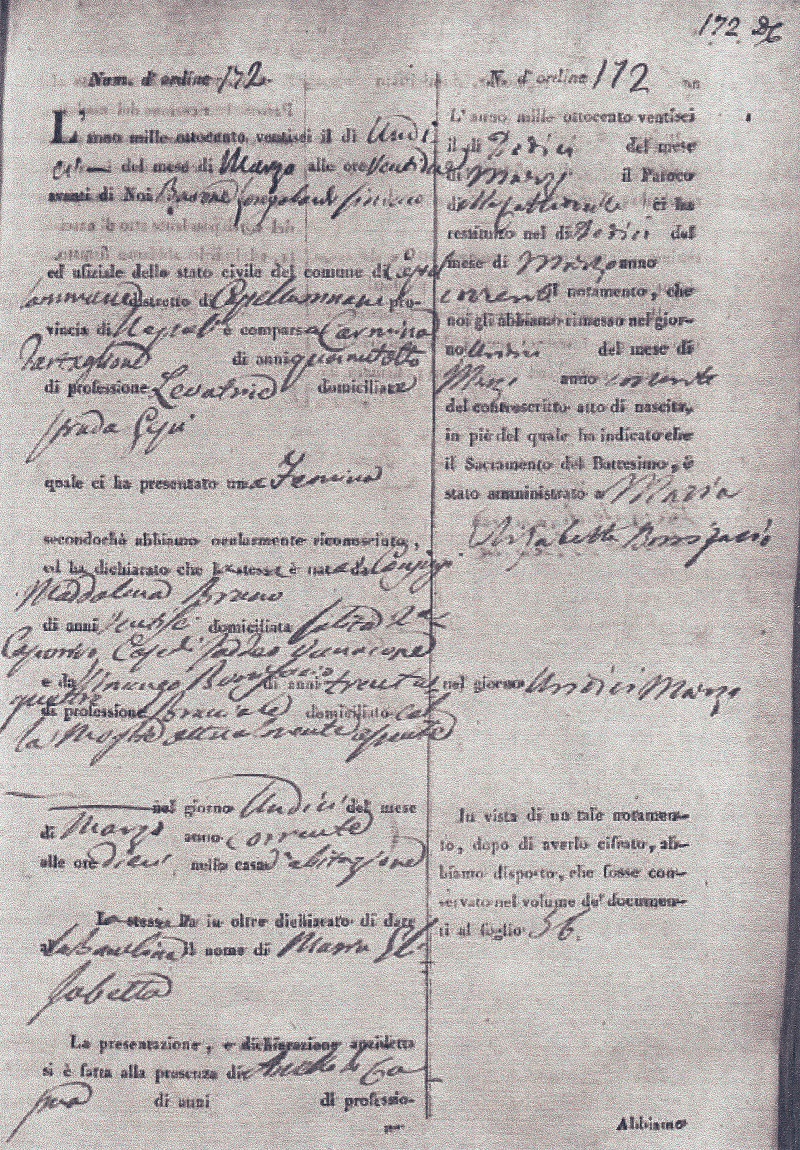 172 26
Num. d'ordine 172
L'anno mille ottocento ventisei il di Undi
ci del mese di Marzo alle ore ventidue
avanti di Noi sindaco
ed ufiziale dello stato civile del comune di Castel
lammare distretto di Castellammare pro-
vincia di Napoli è comparsa Carmina
Tartaglione di anni quarantotto
di professione Levatrice domiciliata
strada Gesù
quale ci ha presentato una Femina
secondochè abbiamo ocularmente riconosciuto,
ed ha dichiarato che la stessa è nata da Conjugi
Maddalena Bruno
di anni domiciliata salita
e da Vincenzo Bonifacio di anni trenta
quattro
di professione bracciale domiciliato col
la Moglie attualmente
nel giorno Undici del mese
di Marzo anno corrente
alle ore dieci nella casa d'abitazione
La stessa ha in oltre dichiarato di dare
alla bambina il nome di Maria Eli
sabetta
La presentazione, e dichiarazione anzidetta
si è fatta alla presenza di Aniello
di anni di professio-
ne
N. d'ordine 172
L'anno mille ottocento ventisei
il di Dodici del mese
di Marzo il Paroco
della Cattedrale ci ha
restituito nel di Dodici del
mese di Marzo anno
corrente il notamento, che
noi gli abbiamo rimesso nel gior-
no Undici del mese di
Marzo anno corrente
del controscritto atto di nascita,
in piè del quale ha indicato che
il Sacramento del Battesimo, è
stato amministrato a Maria
Elisabetta Bonifacio
nel giorno Undici Marzo
In vista di un tale notamen-
to, dopo di averlo cifrato, ab-
biamo disposto, che fosse con-
servato nel volume de' documen-
ti al foglio 56.
Abbiamo